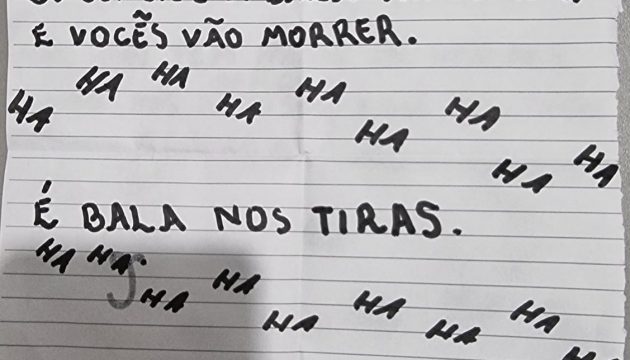 E VOCÊS VÃO MORRER.
HA HA HA HA HA HA HA HA HA
É BALA NOS TIRAS.
HA HA HA HA HA HA HA HA